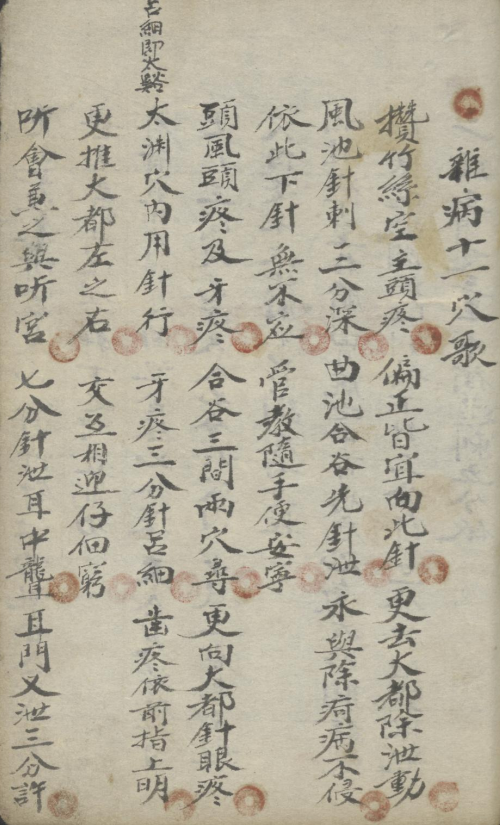 雜病十一穴歌
攢竹絲空主頭疼 偏正皆宜向此針 更去大都除泄動
風池針刺三分深 曲池合谷先針泄 永與除疴病不侵
依此下針無不应 管教隨手便安寧
頭風頭疼及牙疼 合谷三間兩穴尋 更向大都針眼疼
太渊穴內用針行 牙疼三分針呂細 齒疼依前指上明
更推大都左之右 交互相迎仔細窮
呂細即太谿
听會兼之與听宮 七分針泄耳中聾 耳門又泄三分許